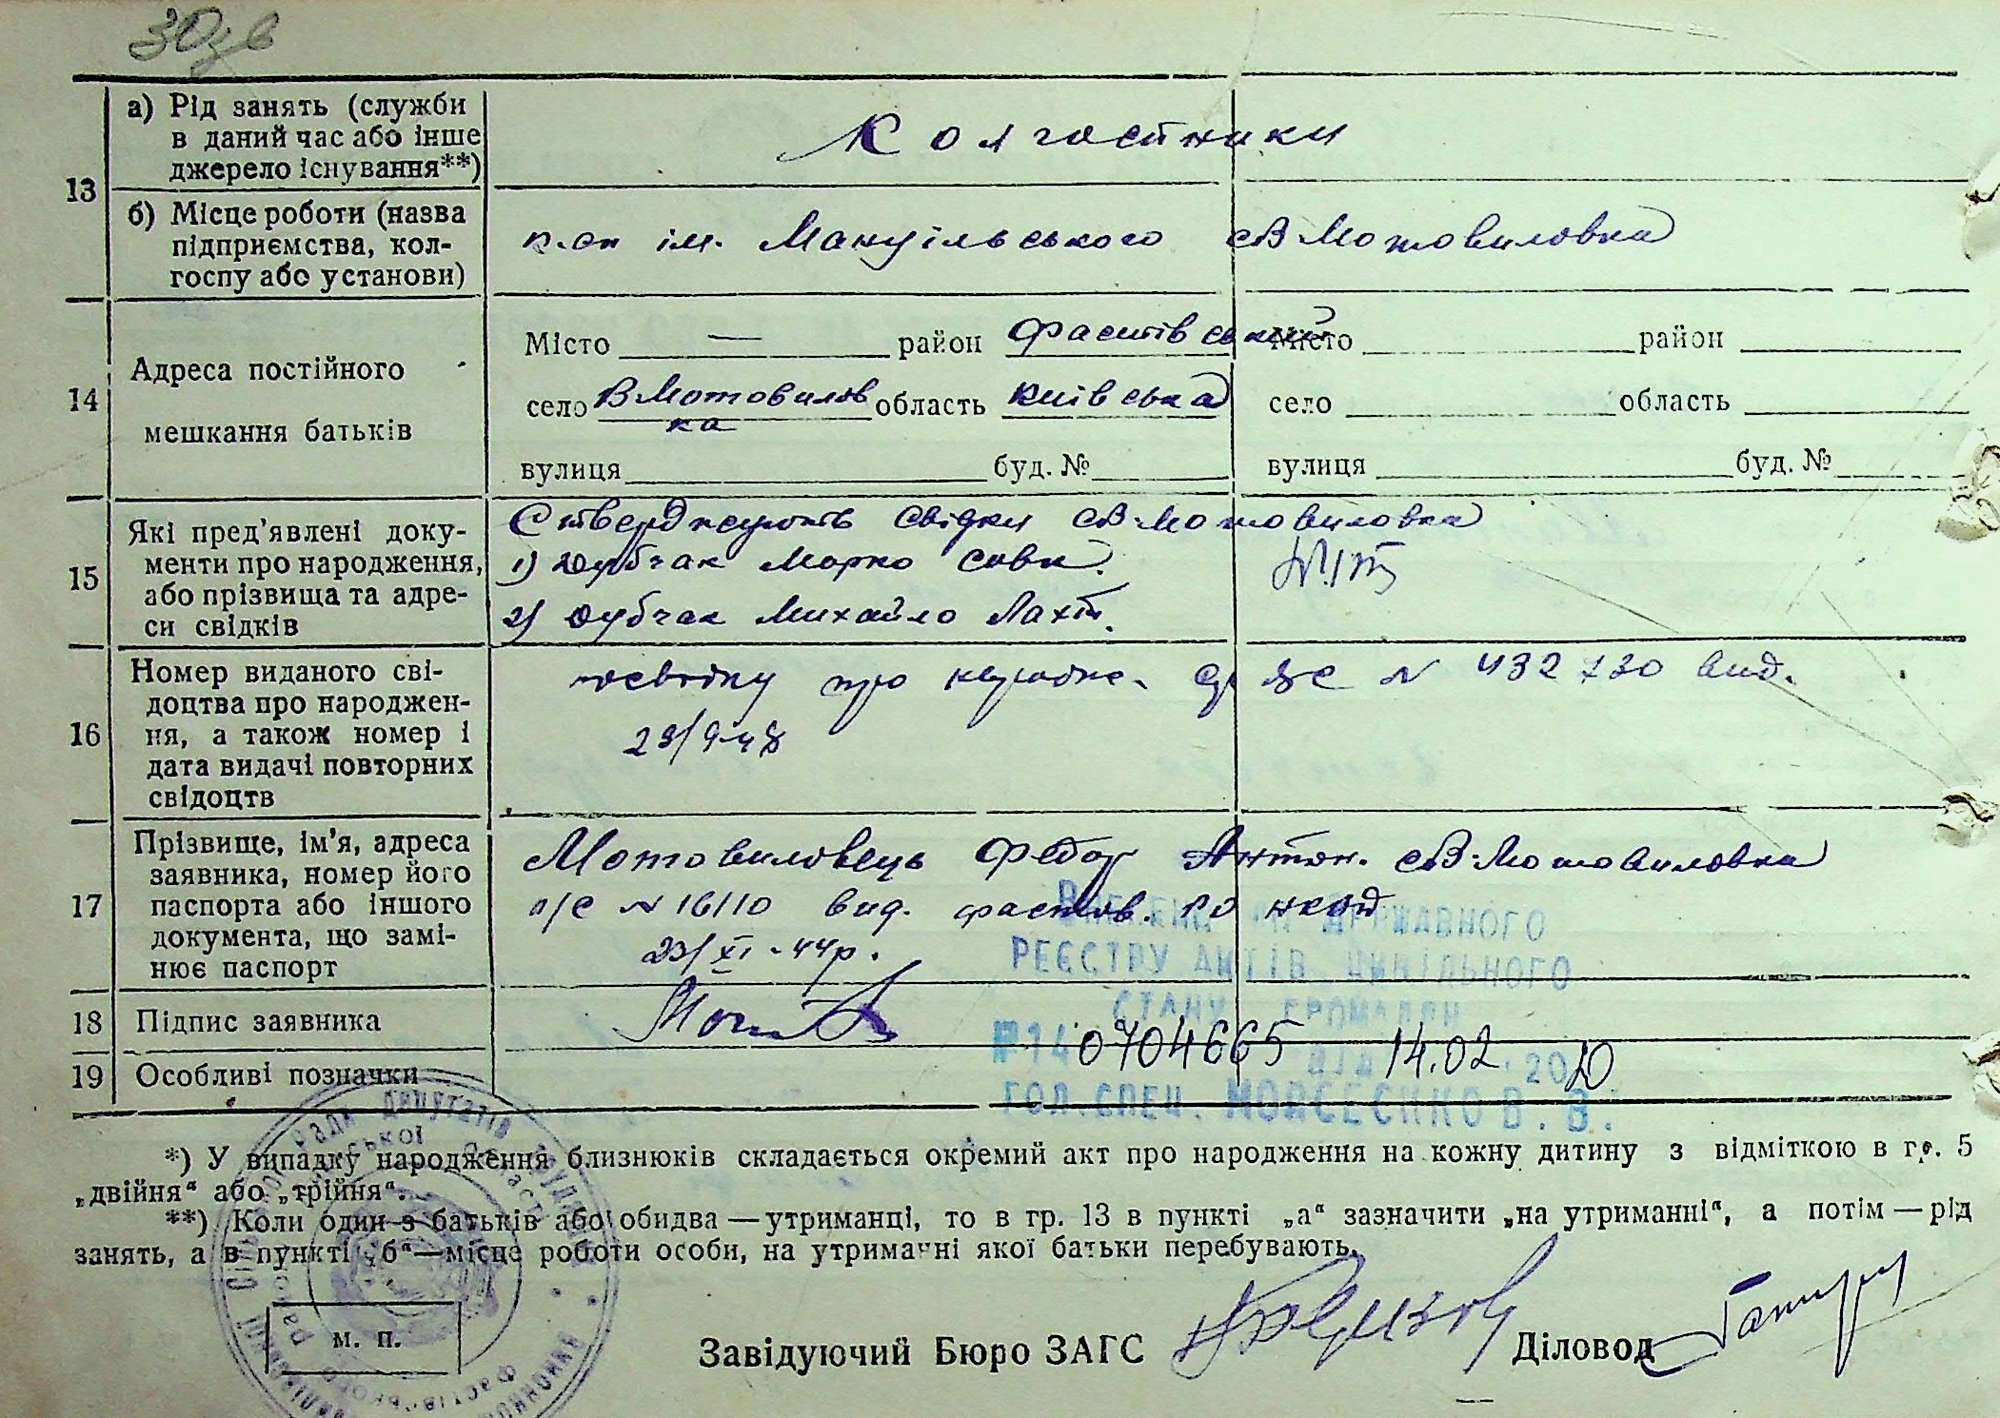 30зв
13
а) Рід занять (служби
в даний час або інше
джерело існування**)
Колгоспники
б) Місце роботи (назва
підприємства, кол-
госпу або установи)
ім. Мануїльського с В Мотовиловка
14
Адреса постійного
мешкання батьків
Місто — район Фастівський
село В Мотовилов область Київська
ка
вулиця буд. №
Місто район
село область
вулиця буд. №
15
Які пред'явлені доку-
менти про народження,
або прізвища та адре-
си свідків
Стверджують свідки с В-Мотовиловка
1) Дубчак Марко Савк.
2) Дубчак Михайло Лахт.
16
Номер виданого сві-
доцтва про народжен-
ня, а також номер і
дата видачі повторних
свідоцтв
про N 432730 вид.
29/9-48
17
Прізвище, ім'я, адреса
заявника, номер його
паспорта або іншого
документа, що замі-
нює паспорт
Мотовиловець Федор Антон. с В-Мотовиловка
п/с N 16110 вид. фастов. РО НКВД
23/XI-44р.
18
Підпис заявника
19
Особливі позначки
ДЕРЖАВНОГО
РЕЄСТРУ АКТІВ ЦИВІЛЬНОГО
СТАНУ ГРОМАДЯН
№14 0704665 від 14.02.2020
ГОЛ. СПЕЦ. МОЙСЕЄНКО В. В.
*) У випадку народження близнюків складається окремий акт про народження на кожну дитину з відміткою в гр. 5
„двійня“ або „трійня“.
**) Коли один з батьків або обидва — утриманці, то в гр. 13 в пункті „а“ зазначити „на утриманні“, а потім — рід
занять, а в пункті „б“ — місце роботи особи, на утриманні якої батьки перебувають.
м. п.
Завідуючий Бюро ЗАГС
Діловод